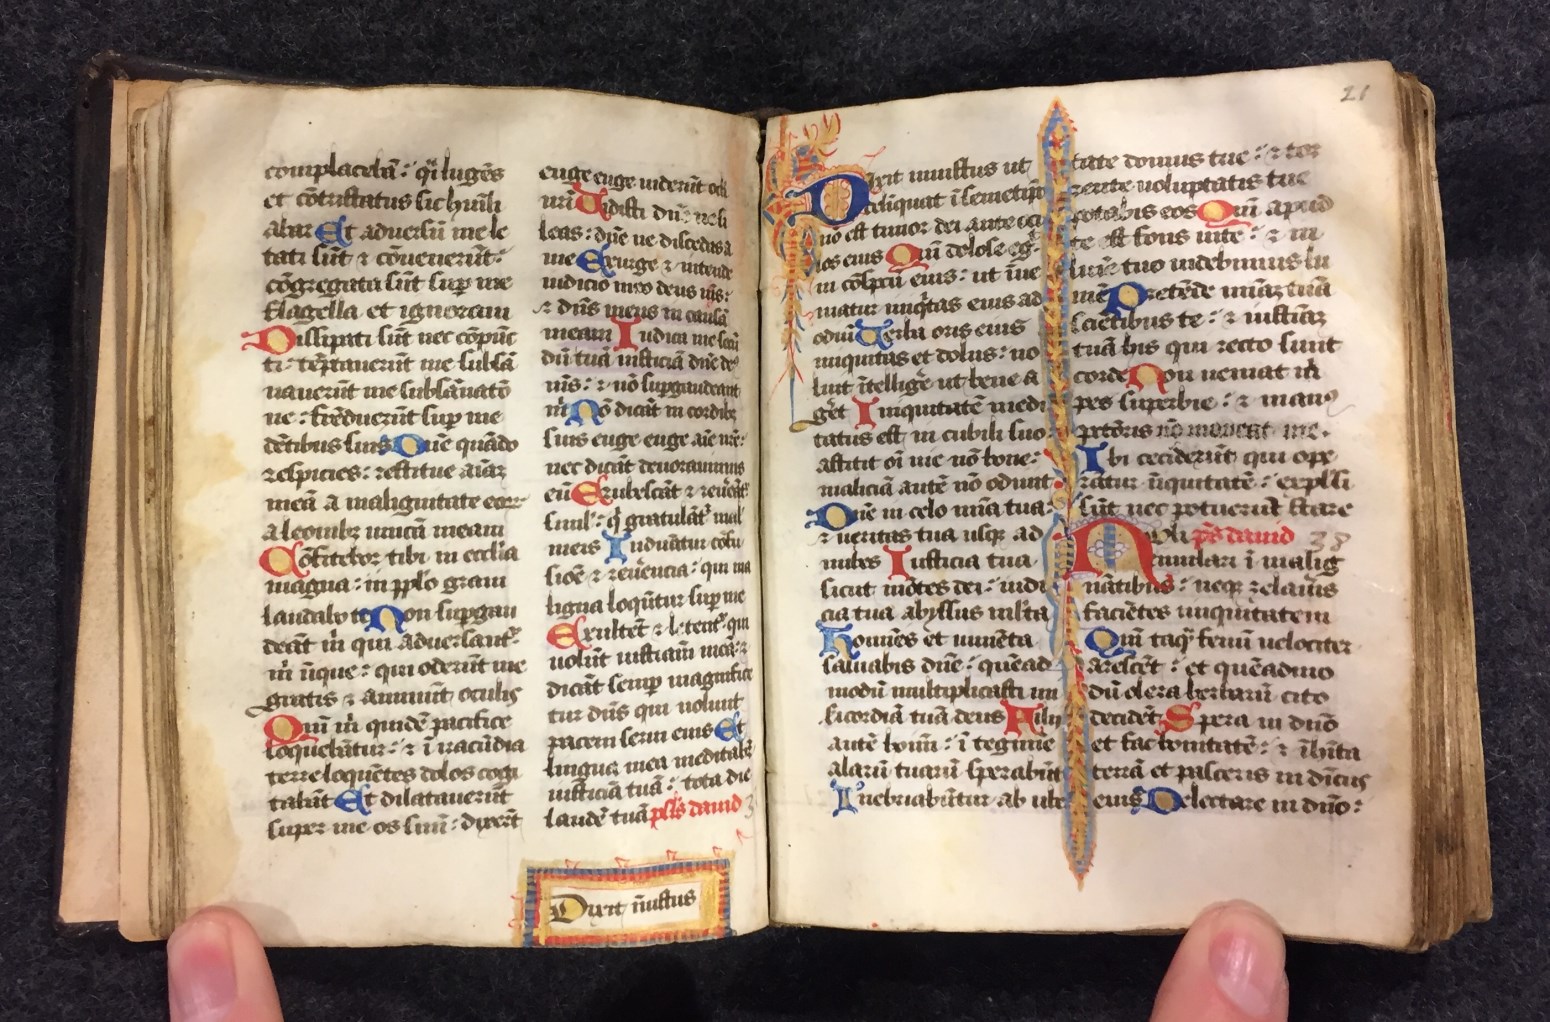 complacebā: qͥ lugēs
et cōtristatus sic hūili
abar Et adversū me le
tati sūt ⁊ cōvenerūt:
cōgregata sūt suꝑ me
flagella et ignoravi
Dissipati sūt nec cōpūc
ti: tēptaverūt me subsā
naverūt me subsānatō
ne: frēduerūt suꝑ me
dētibus suis Dn̄e quādo
respicies: restitue aīaꝫ
meā a malignitate eoꝝ
a leonibꝫ unicā meam
Cōfitebor tibi in ecclīa
magna: in ppl̄o gravi
laudabo te Non suꝑgau
deāt m̄ qui adversantᷣ
m̄ īique: qui oderūt me
gratis ⁊ annuūt oculis
Qm̄ m̄ quidē pacifice
loquebātur: ⁊ ī iracūdia
terre loquētes dolos cogi
tabāt Et dilataverūt
super me os suū: dixerūt
euge euge viderūt ocli
nr̄i Vidisti dn̄e ne si
leas: dn̄e ne discedas a
me Exurge ⁊ intende
iudicio meo deus m̄s:
⁊ dn̄s meus in causā
meam Iudica me scd̄ū
dū tuā iusticiā dn̄e de
m̄s: ⁊ nō suꝑgaudeant
m̄ Nō dicāt in cordibꝫ
suis euge euge aīe nr̄e:
nec dicāt devoravimus
eū Erubescāt ⁊ revēātᷣ
simul: qͥ gratulātᷣ mal
meis Induātur cōfu
siōe ⁊ revērencia: qui ma
ligna loquūtur suꝑ me
Exultēt ⁊ letentᷣ qui
volūt iusticiam meā: ⁊
dicāt semꝑ magnifice
tur dn̄s qui volunt
pacem servi eius Et
lingua mea meditabitᷣ
iusticiā tuā: tota die
laudē tuā pſlꝰs david
Dixit īiustus
21
Dixit iniustus ut
delīquat ī semetip̄o
no est timor dei ante oc
los eius Qm̄ dolose egͭ
in cōspcū eius: ut īve
niatur iniqͥtas eius ad
odiū Verba oris eius
iniquitas et dolus: no
luit ītelligē ut bene a
gēt Iniquitatē medi
tatus est in cubili suo
astitit oī vie nō bone:
maliciā autē nō odivit
Dn̄e in celo mīa tua:
⁊ veritas tua usqꝫ ad
nubes Iusticia tua
sicut mōtes dei: iudi
cia tua abyssus multa
Homīes et iumēta
salvabis dn̄e: quēad
modū multiplicasti mi
sicordiā tuā deus Filii
autē hoīm: ī tegmīe
alarū tuarū sperabūt
Inebriabūtur ab uber
tate domus tue: ⁊ tor
rente voluptatis tue
potabis eos Qm̄ apud
te est fons vite: ⁊ in
lumīe tuo videbimus lu
mē Pretēde mīaꝫ tuā
scietibus te: ⁊ iusticiaꝫ
tuā his qui recto sunt
corde Non veniat m̄
pes superbie: ⁊ manꝰ
pctōris nō moveat me.
Ibi ceciderūt qui ope
ratur īiquitatē: expulsi
sūt nec potuerūt stare
Noli pſ̄s david 38
emulari ī malig
nātibus: neqꝫ zelav̄is
faciētes iniquitatem
Qm̄ taqͣ fenū velociter
arescēt: et quēadmo
dū olera herbarū cito
decidēt Spera in dn̄o
et fac bonitatē: ⁊ īhīta
terrā et pasceris in divicijs
eius Delectare in dn̄o: